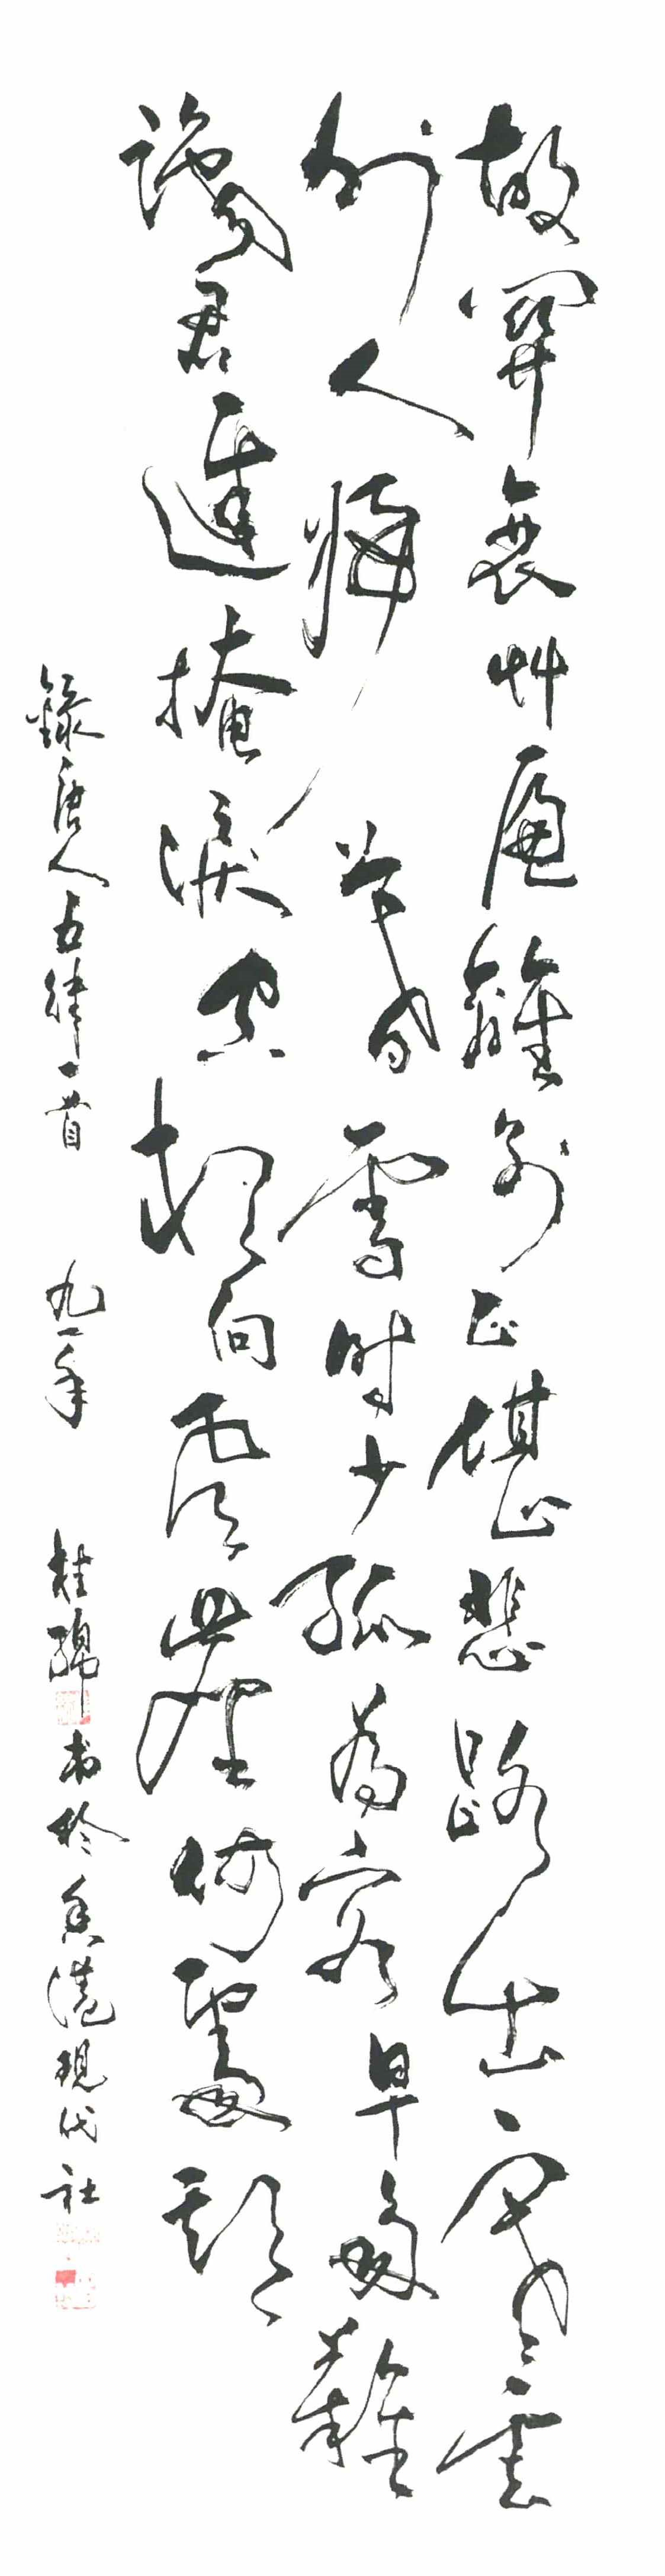 故關衰艸遍離別正堪悲路出寒雲
外人歸暮雪时少孤為客早多難
識君遲掩淚空相向風塵何處期
錄唐人五律一首 九一年 桂 书於香港現代社